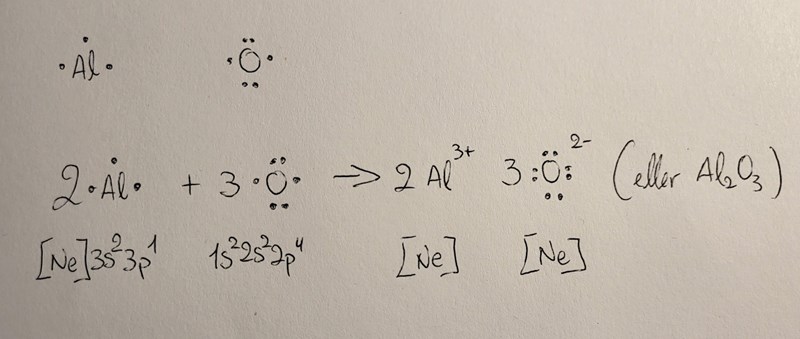 ·Ȧl· ·Ö̤·
2·Ȧl· + 3·Ö̤· → 2 Al³⁺ 3:Ö̤:²⁻ (eller Al₂O₃)
[Ne]3s²3p¹ 1s²2s²2p⁴ [Ne] [Ne]